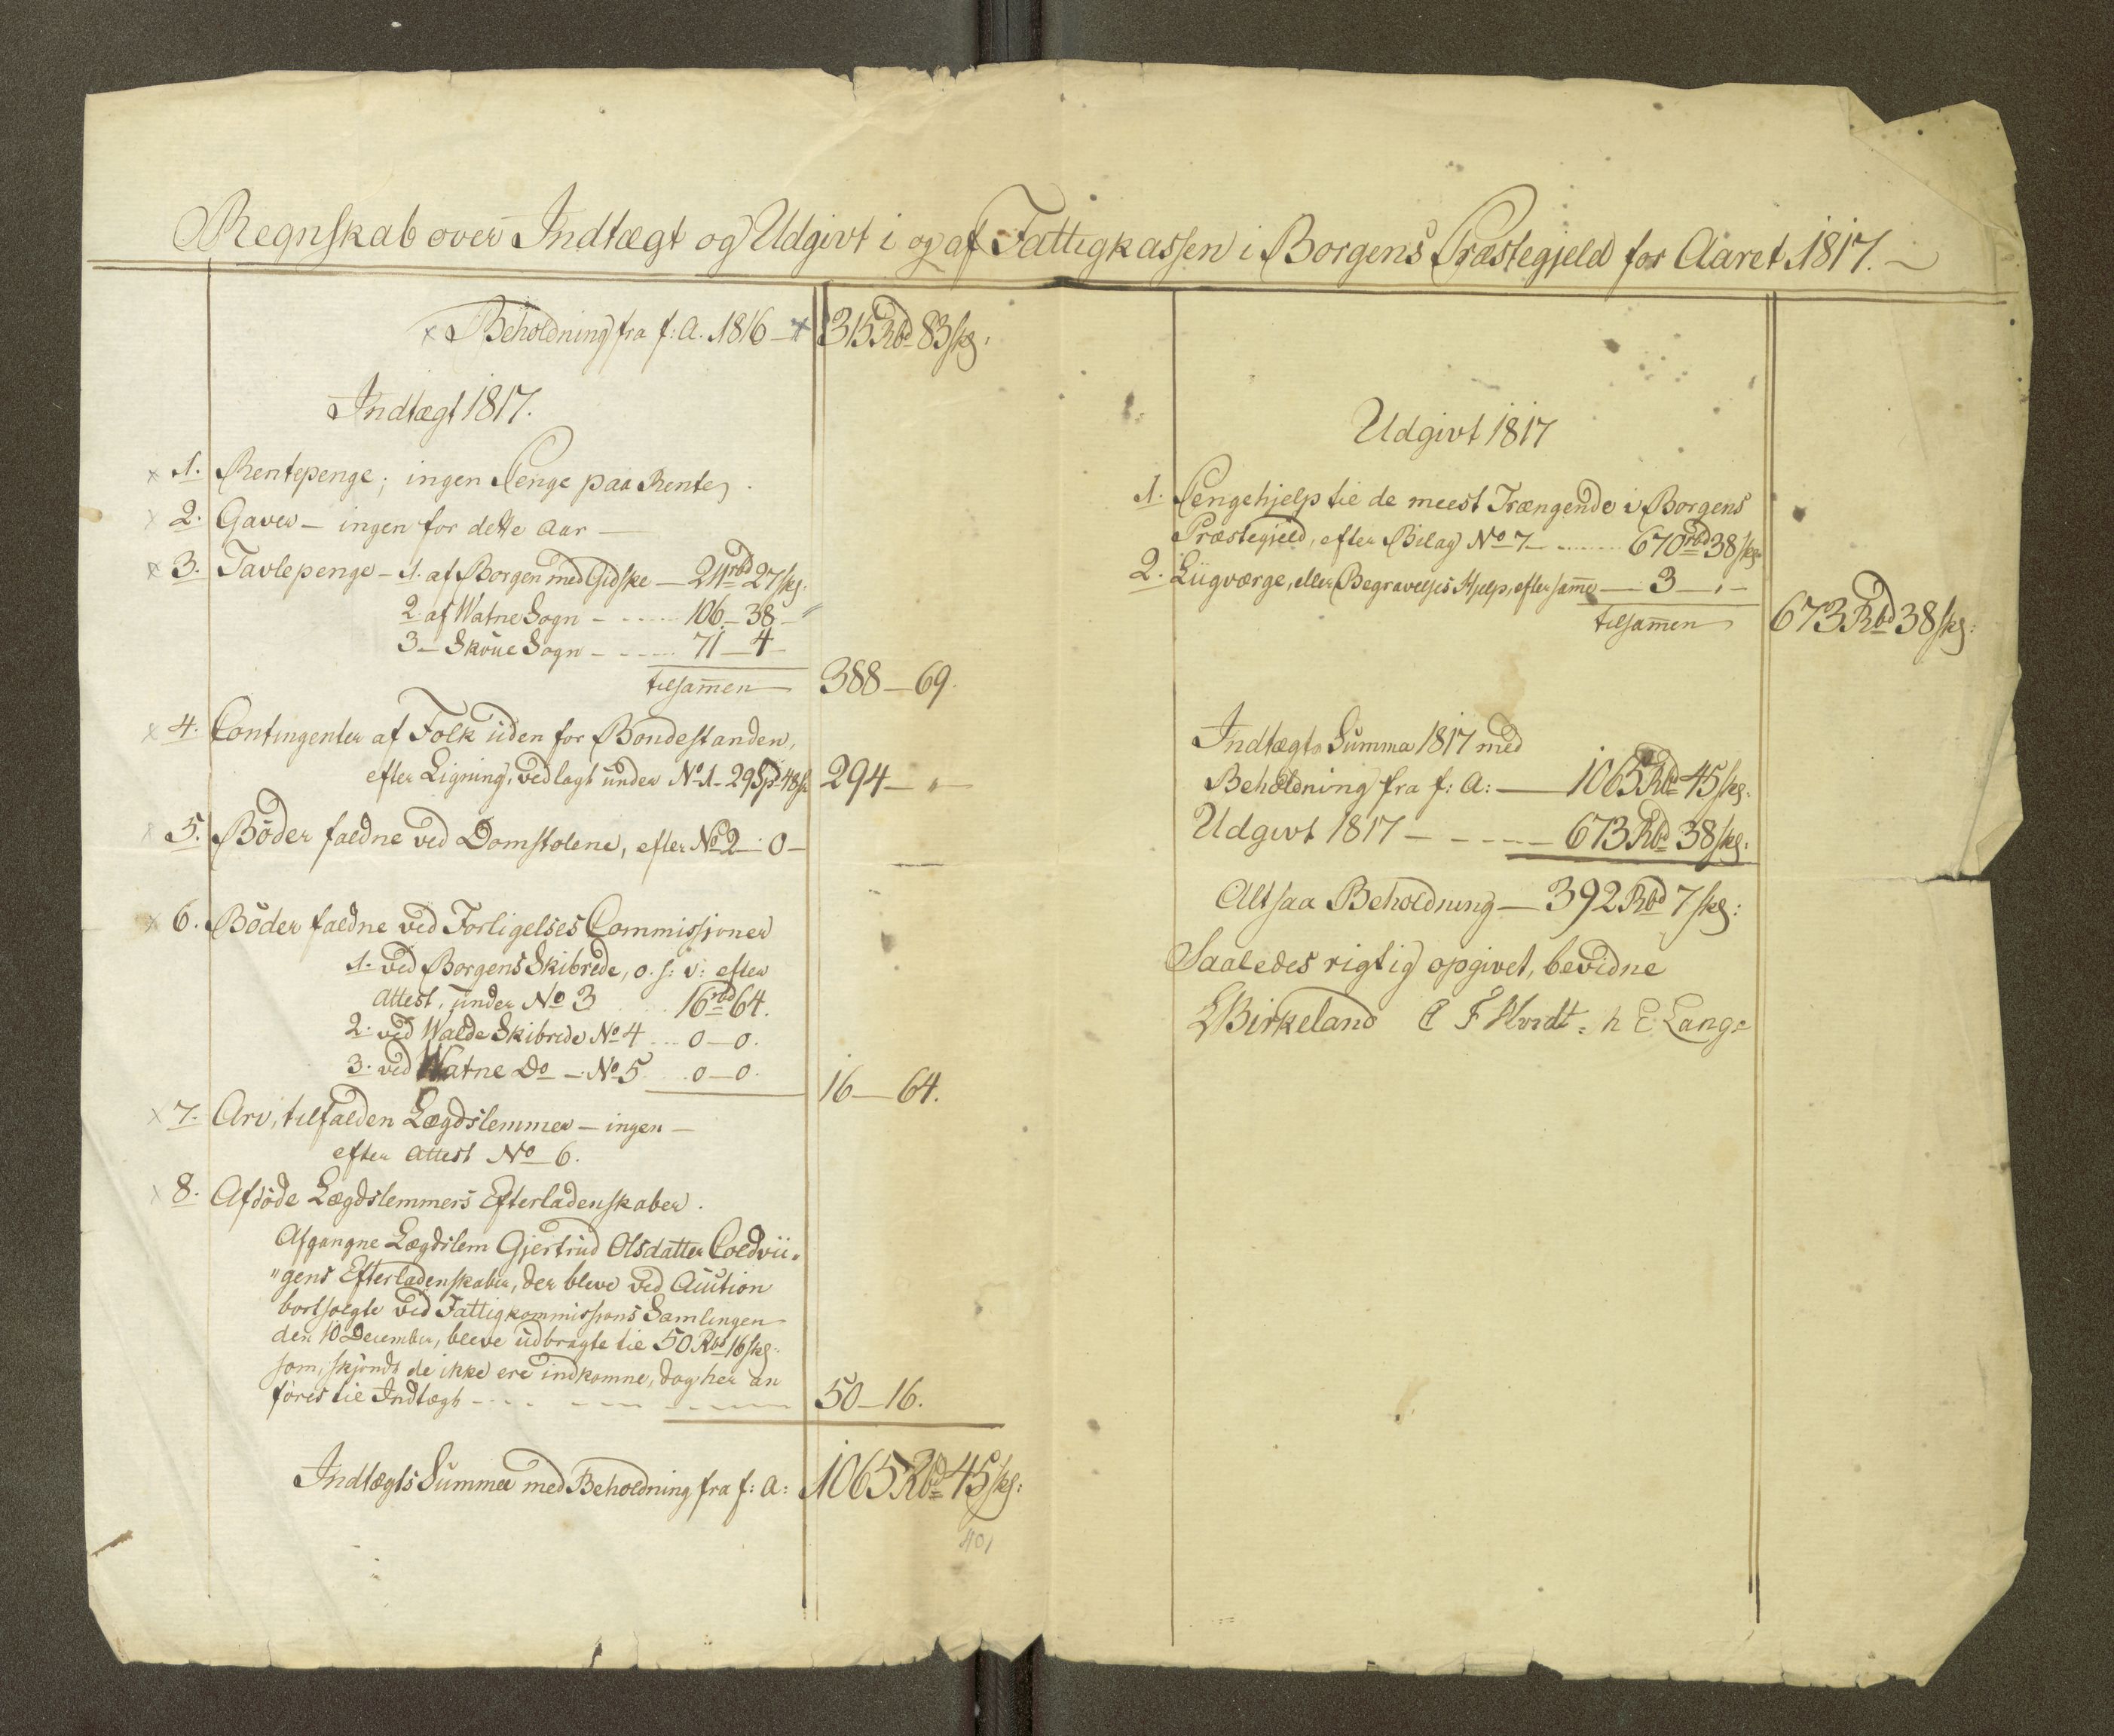 Regnskab over Indtægt og Udgivt i og af Fattigkassen i Borgens Præstegjeld for Aaret 1817.
Beholdning fra f: A. 1816 — 315 Rbd 83 skg:
Indtægt 1817.
1. Rentepenge; ingen Penge paa Rente.
2. Gaver — ingen for dette Aar —
3. Tavlepenge — 1. af Borgen med Gidske — 211 rbd 27 skg.
2 af Watne Sogn - - - - - 106 - 38 -
3 — Skoue Sogn - - - - - 71 - 4 -
tilsam̅en — 388 — 69.
4. Contingenter af Folk uden for Bondestanden,
efter Ligning, vedlagt under No 1 - 29 Sp 48 s 294 — " —
5. Bøder faldne ved Domstolene, efter No 2 — 0 —
6. Bøder faldne ved Forligelses Commissioner
1. ved Borgens Skibrede, o. s: v: efter
Attest, under No 3 16 rbd 64.
2. ved Walde Skibrede No 4 ... 0 — 0.
3. ved Watne Do — No 5 .. 0 — 0.
16 — 64.
7. Arv, tilfalden Lægdslemmer — ingen —
efter Attest No 6.
8. Afdøde Lægdslemmers Efterladenskaber.
Afgangne Lægdslem Gjertrud Olsdatter Coldvii„
„gens Efterladenskaber, der bleve ved Auution
bortsolgte ved Fattigkommissions Samlingen
den 10 December, bleve udbragte til 50 Rbd 16 skg.
som, skjøndt de ikke ere indkomne, dog her an
føres til Indtægt - - - - 50 — 16.
Indtægts Summa med Beholdning fra f: A: 1065 Rbd 45 skg:
401
Udgivt 1817
1. Pengehjelp til de meest Trængende i Borgens
Præstegjeld, efter Bilag No 7 - ..... 670 rbd 38 skg
2. Liigværge, eller Begravelses Hjelp, efter sam̅e — 3 — " —
tilsam̅en 673 Rbd 38 skg:
Indtægts Summa 1817 med
Beholdning fra f: A: — 1065 Rbd 45 skg.
Udgivt 1817 - - - - - 673 Rbd 38 skg.
Altsaa Beholdning — 392 Rbd 7 skg:
Saaledes rigtig opgivet, bevidne
E Birkeland C F Hvidt. h E Lange